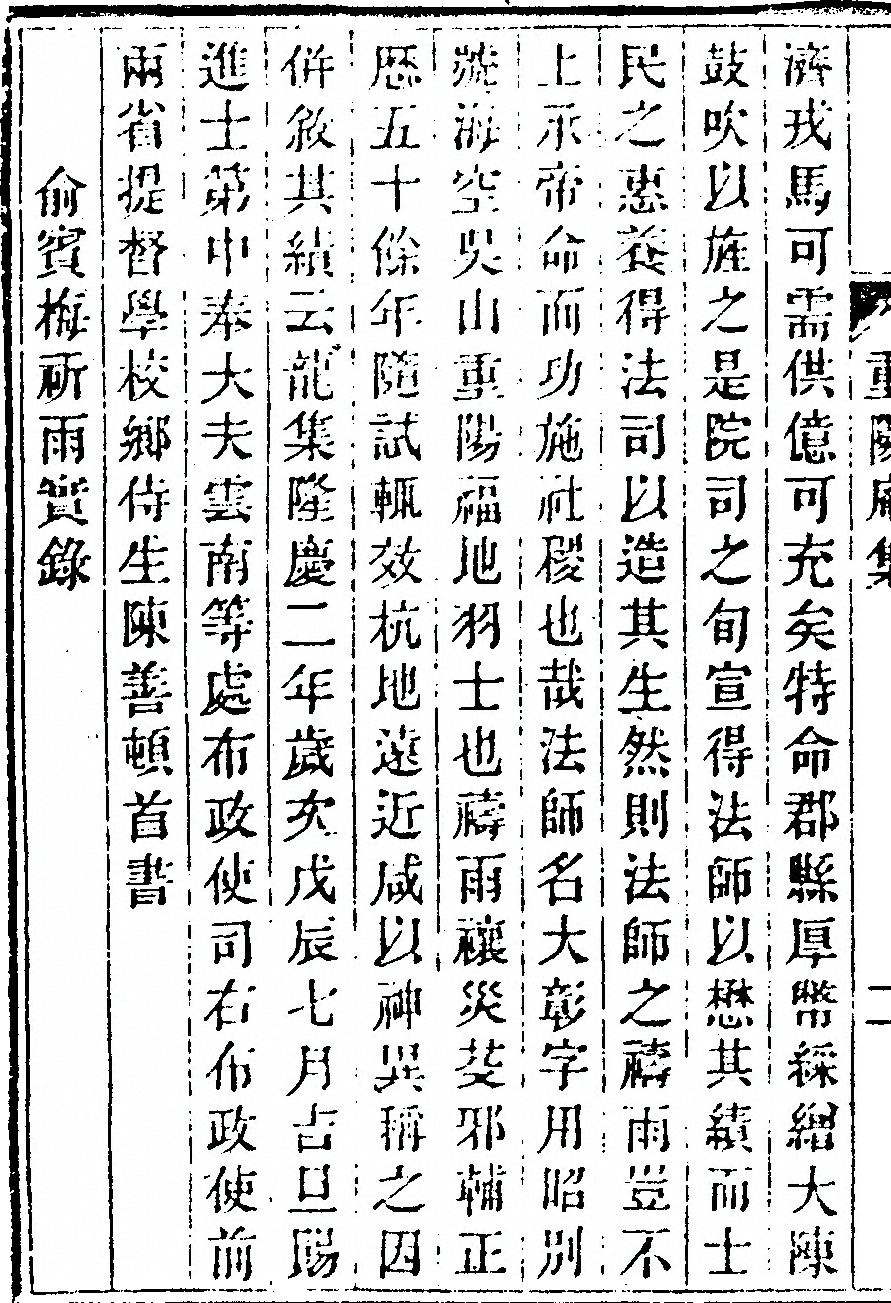 重陽庵集
二
濟戎馬可需供億可充矣特命郡縣厚幣綵繒大陳
鼓吹以旌之是院司之旬宣得法師以懋其績而士
民之惠養得法司以造其生然則法師之禱雨豈不
上承帝命而功施社稷也哉法師名大彰字用昭別
號海空吳山重陽福地羽士也禱雨禳災芟邪輔正
歷五十餘年隨試輒效杭地遠近咸以神異稱之因
併敘其績云龍集隆慶二年歲次戊辰七月吉旦賜
進士第中奉大夫雲南等處布政使司右布政使前
兩省提督學校鄉侍生陳善頓首書
俞賓梅祈雨實錄